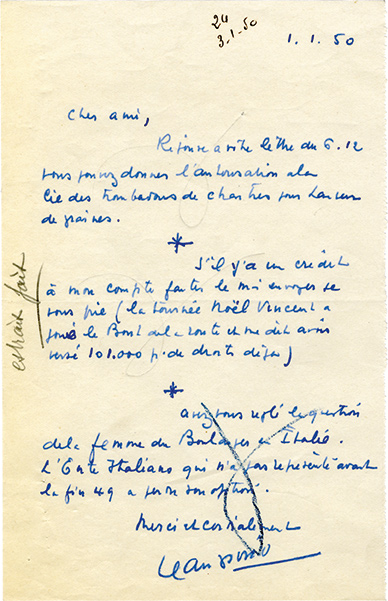 24
3-1-50
1.1.50
Cher ami,
Réponse a votre lettre du 6.12
vous pouvez donner l'autorisation a la
Cie des troubadours de chartres pour Lanceur
de graines.
S'il y'a un crédit
à mon compte faites le moi envoyer je
vous prie (la tournée Noël Vincent a
joué le Bout de la route et me dit avoir
versé 101.000 p. de droits déjà)
avez vous réglé la question
de la femme du Boulanger en Italie.
L'Ente Italiano qui n'a pas représenté avant
la fin 49 a perdu son option.
Merci et cordialement
Jean Giono
extrait fait